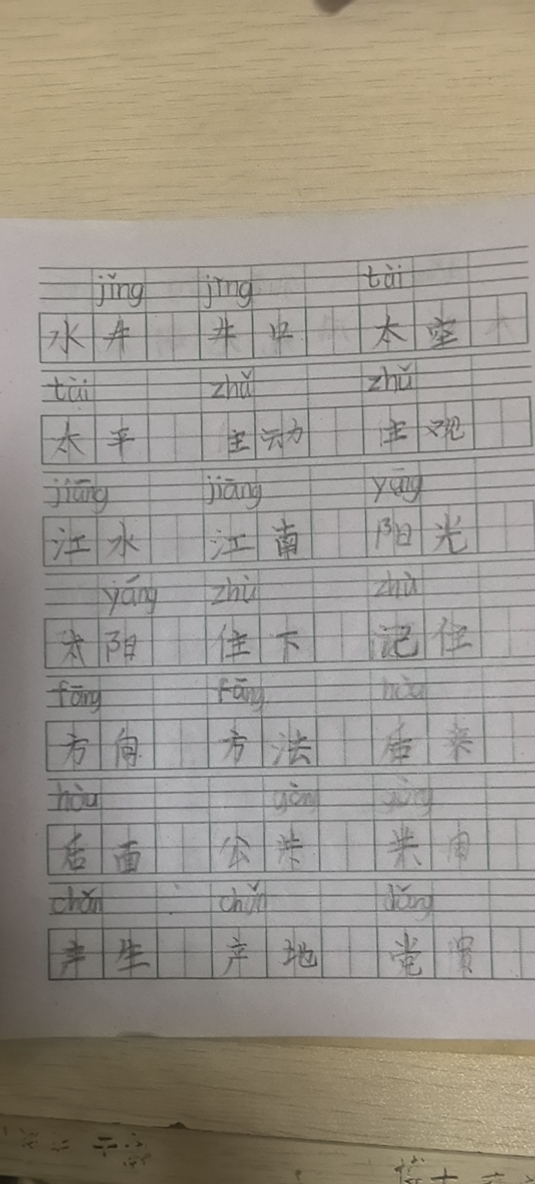 jǐng jǐng tài
水井 井中 太空
tài zhǔ zhǔ
太平 主动 主观
jiāng jiāng yáng
江水 江南 阳光
yáng zhù zhù
太阳 住下 记住
fāng fāng hòu
方向 方法 后来
hòu gòng
后面 公共
chǎn chǎn dǎng
产生 产地 党